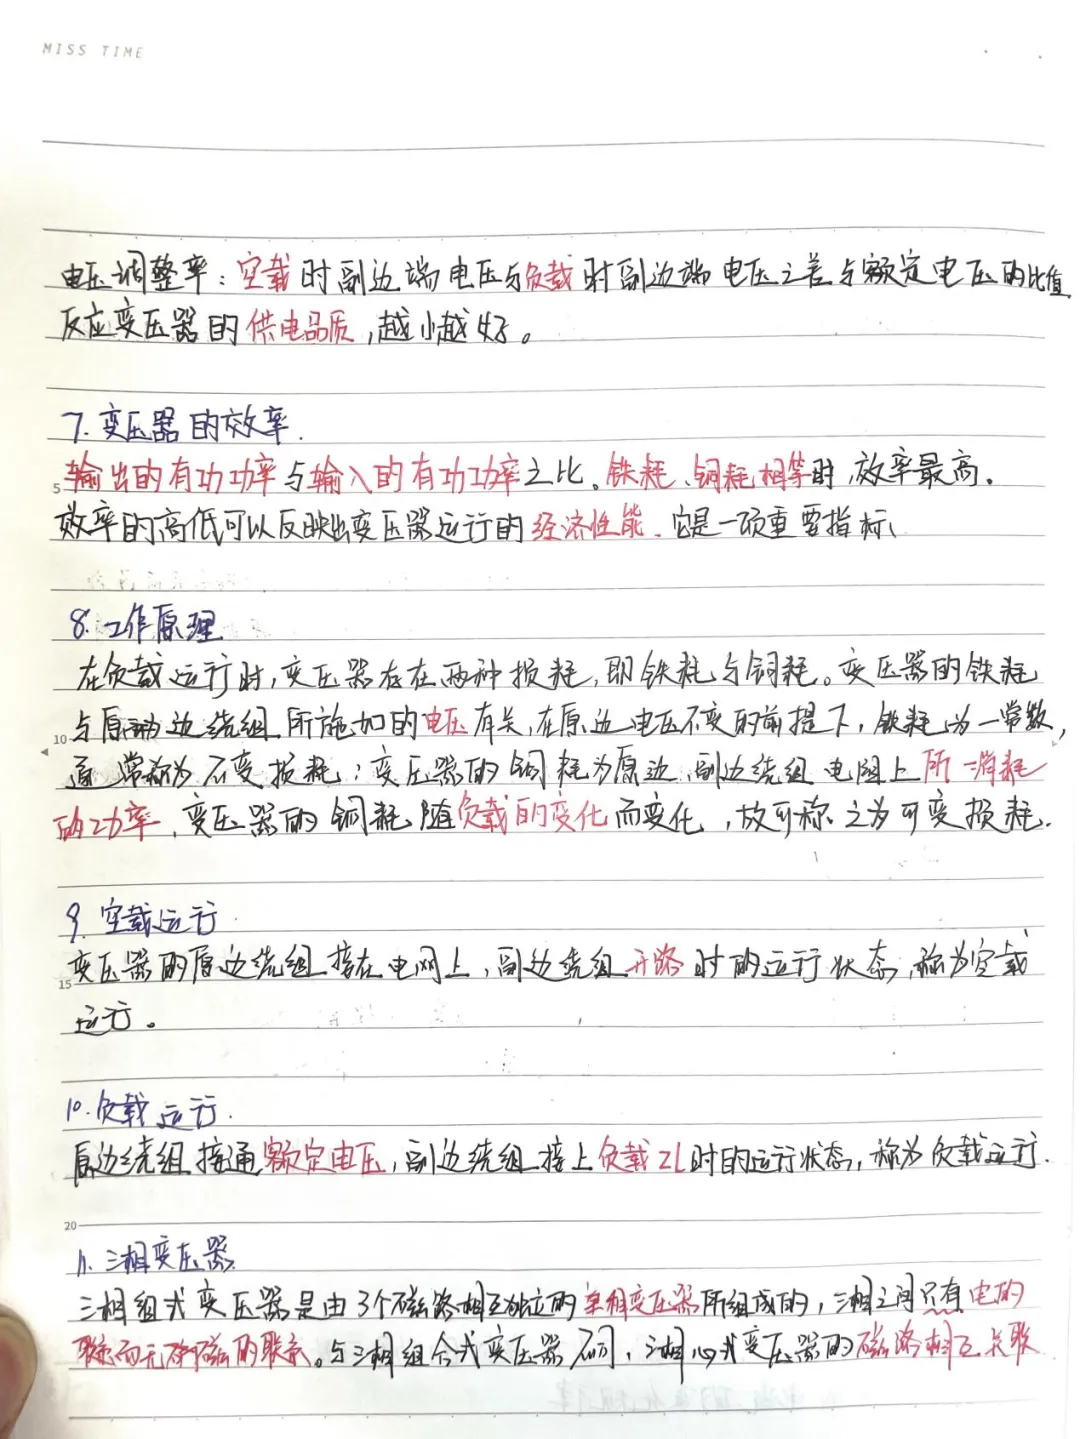 MISS TIME
电压调整率：空载时副边端电压与负载时副边端电压之差与额定电压的比值
反应变压器的供电品质，越小越好。
7. 变压器的效率.
输出的有功功率与输入的有功功率之比。铁耗、铜耗相等时,效率最高.
5
效率的高低可以反映出变压器运行的经济性能.它是一项重要指标、
8. 工作原理
在负载运行时,变压器存在两种损耗,即铁耗与铜耗。变压器的铁耗
与原边绕组所施加的电压有关,在原边电压不变的前提下,铁耗为一常数,
10
通常称为不变损耗；变压器的铜耗为原边、副边绕组电阻上所消耗
的功率,变压器的铜耗随负载的变化而变化,故可称之为可变损耗.
9. 空载运行.
变压器的原边绕组接在电网上,副边绕组开路时的运行状态,称为空载
15
运行。
10. 负载运行.
原边绕组接通额定电压,副边绕组接上负载ZL时的运行状态,称为负载运行.
20
11. 三相变压器
三相组式变压器是由3个磁路相互独立的单相变压器所组成的,三相之间只有电的
联系而无磁的联系。与三相组合式变压器不同,三相心式变压器的磁路相互关联